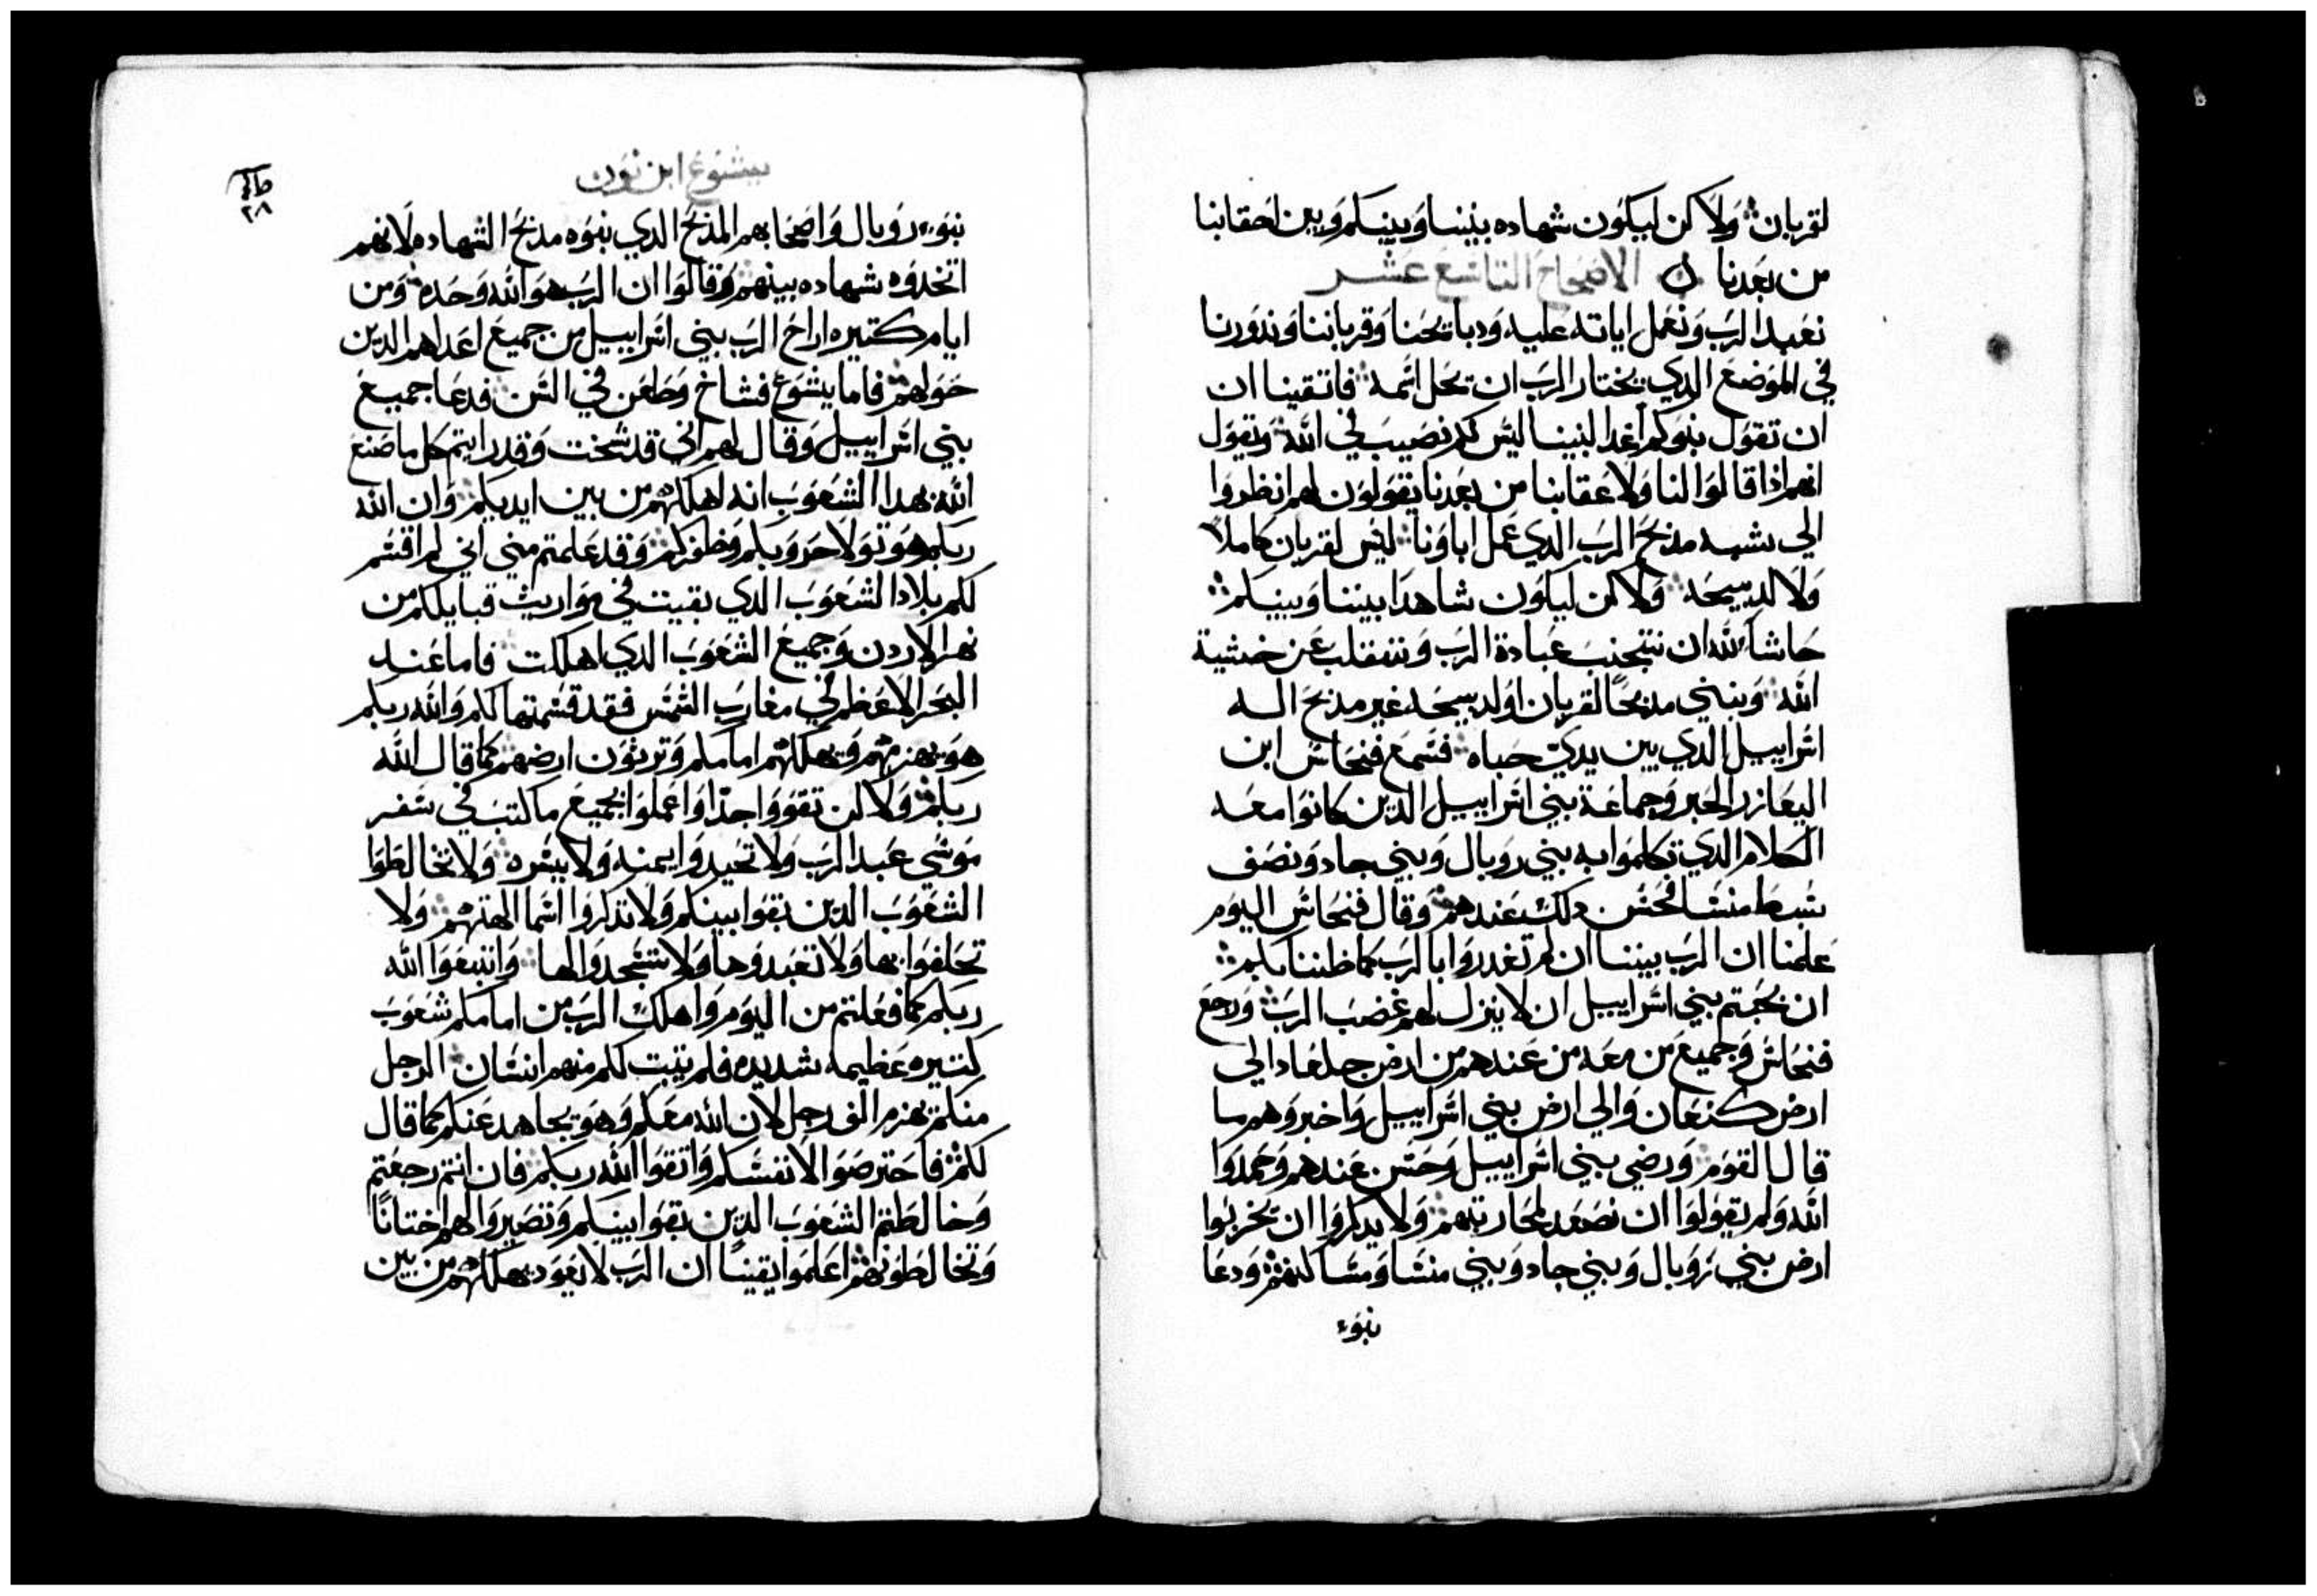 لقربان ولاكن ليكون شهاده بيننا وبينكم وبين احقابنا
من بعدنا الاصحاح التاسع عشر
نعبد الرب ونعمل اياته عليه ودبايحنا وقرباننا وندورنا
في الموضع الدي يختار الرب ان يحل اسمه فاتقينا ان
ان تقول بنوكم غدا لنبينا ليس لكم نصيب في الله ونقول
انهم ادا قالوا لنا ولاعقابنا من بعدنا يقولون لهم انظروا
الي شبه مدبح الرب الدي عمل اباونا ليس لقربان كاملا
ولا لدبيحه ولاكن ليكون شاهدا بيننا وبينكم
حاشا لله ان نتجنب عبادة الرب وننقلب عن خشية
الله ونبني مدبحا لقربان او لدبيحه غير مدبح اله
اسراييل الدي بين يدي حباه فسمع فنحاس ابن
اليعازر الحبر وجماعة بني اسراييل الدين كانوا معه
الكلام الدي تكلموا به بني روبال وبني جاد ونصف
سبط منسا فحسن دلك عندهم وقال فنحاس اليوم
علمنا ان الرب بيننا ان لم تغدروا بالرب كما ظننا بكم
ان نجيتم بني اسراييل ان لا ينزل لهم غضب الرب ورجع
فنحاس وجميع من معه من عندهم من ارض جلعاد الي
ارض كنعان والي ارض بني اسراييل واخبروهم بما
قال القوم ورضي بني اسراييل وحسن عندهم وحمدوا
الله ولم يقولوا ان نصعد لمحاربتهم ولا يدكروا ان يخربوا
ارض بني روبال وبني جاد وبني منسا ومساكنهم ودعا
بنوء
يشوع ابن نون
٢٨
بنوء روبال واصحابهم المدبح الدي بنوه مدبح الشهاده لانهم
اتخدوه شهاده بينهم وقالوا ان الرب هو الله وحده ومن
ايام كتيره اراح الرب بني اسراييل من جميع اعداهم الدين
حولهم فاما يشوع فشاخ وطعن في السن فدعا جميع
بني اسراييل وقال لهم اني قد شخت وقد رايتم كل ما صنع
الله بهدا الشعوب انه اهلكهم من بين ايديكم وان الله
ربكم هو تولا حروبكم وظفركم وقد علمتم مني اني لم اقسم
لكم بلاد الشعوب الدي بقيت في مواريث قبايلكم من
نهر الاردن وجميع الشعوب الدي اهلكت فاما عند
البحر الاعظم في مغارب الشمس فقد قسمتها لكم والله ربكم
هو يهزمهم ويهلكهم امامكم وترثون ارضهم كما قال الله
ربكم ولاكن تقووا جدا واعملوا بجميع ما كتب في سفر
موسي عبد الرب ولا تحيدوا يمنه ولا يسره ولا تخالطوا
الشعوب الدين بقوا بينكم ولا تدكروا اسما الهتهم ولا
تحلفوا بها ولا تعبدوها ولا تسجدوا لها واتبعوا الله
ربكم كما فعلتم من اليوم واهلك الرب من امامكم شعوب
كتيره عظيمه شديده فلم يتبت لكم منهم انسان الرجل
منكم يهزم الف رجل لان الله معكم وهو يجاهد عنكم كما قال
لكم فاحترصوا لانفسكم واتقوا الله ربكم فان انتم رجعتم
وخالطتم الشعوب الدين بقوا بينكم وتصيروا لهم اختانا
وتخالطونهم اعلموا يقينا ان الرب لا يعود يهلكهم من بين